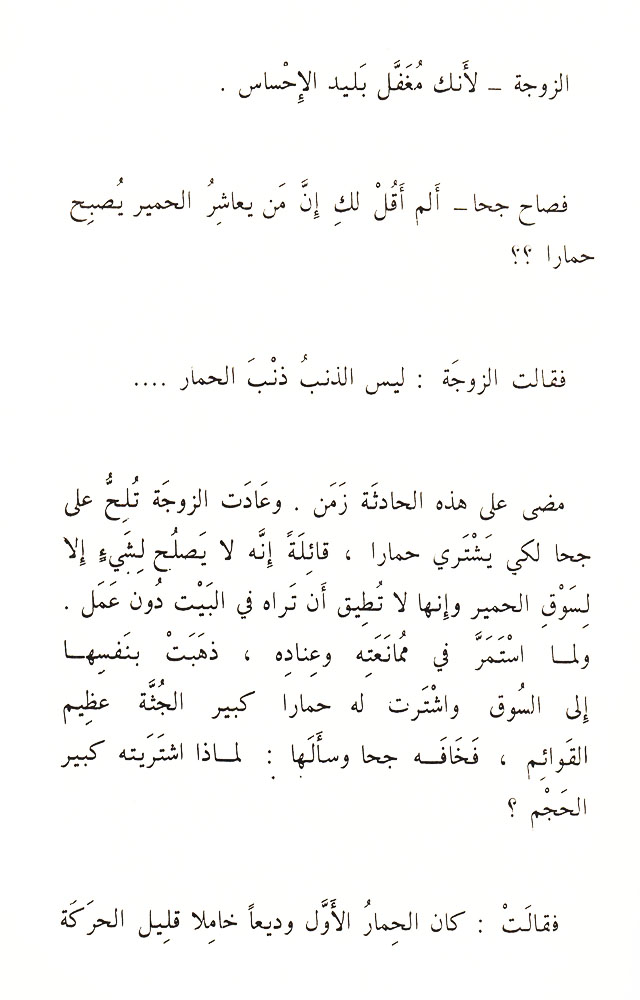 الزوجة – لأَنك مُغَفَّل بَليد الإِحْساس .
فصاح جحا– أَلم أَقُلْ لكِ إِنَّ مَن يعاشِرُ الحمير يُصبِح
حمارا ؟؟
فقالت الزوجَة : ليس الذنبُ ذنْبَ الحمار ....
مضى على هذه الحادثَة زَمَن . وعَادَت الزوجَة تُلِحُّ على
جحا لكي يَشْتَري حمارا ، قائِلَةً إِنَّه لا يَصلُح لِشَيءٍ إِلا
لِسَوْقِ الحمير وإِنها لا تُطِيق أَن تَراه في البَيْت دُون عَمَل .
ولمـا اسْتَمَرَّ في مُمانَعَتِه وعِنادِه ، ذهَبَتْ بنَفسِهـا
إِلى السُوق واشْتَرت له حمارا كبير الجُثَّة عظِيم
القَوائِم ، فَخَافَـه جحا وسأَلَها : لمـاذا اشتَرَيته كبير
الحَجْم ؟
فقالَتْ : كان الحِمارُ الأَوَّل وديعاً خامِلا قلِيل الحرَكَة